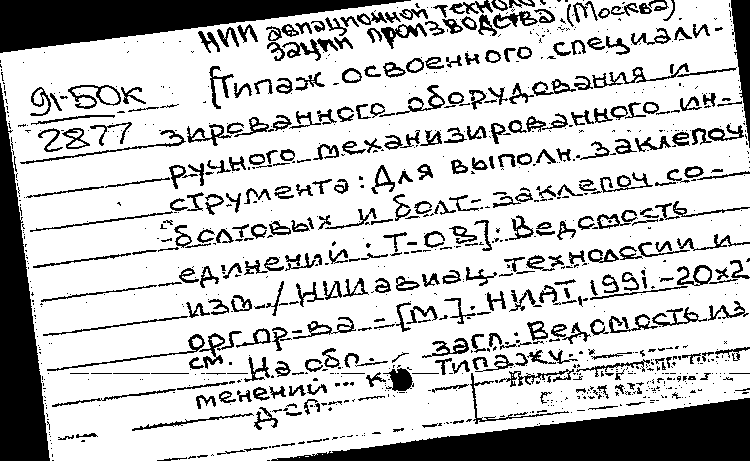 НИИ авиационной технолог
зации производства (Москва)
91-50К
2877
[Типаж освоенного специали-
зированного оборудования и
ручного механизированного ин-
струмента: Для выполн. заклепоч
-болтовых и болт-заклепоч. со-
единений: Т-ОВ]: Ведомость
изм. / НИИ авиац. технологии и
орг. пр-ва - [М.]: НИАТ, 1991. - 20х2
см. На обл. загл.: Ведомость из
менений... к типажу...
Дсп.
Полный перечень